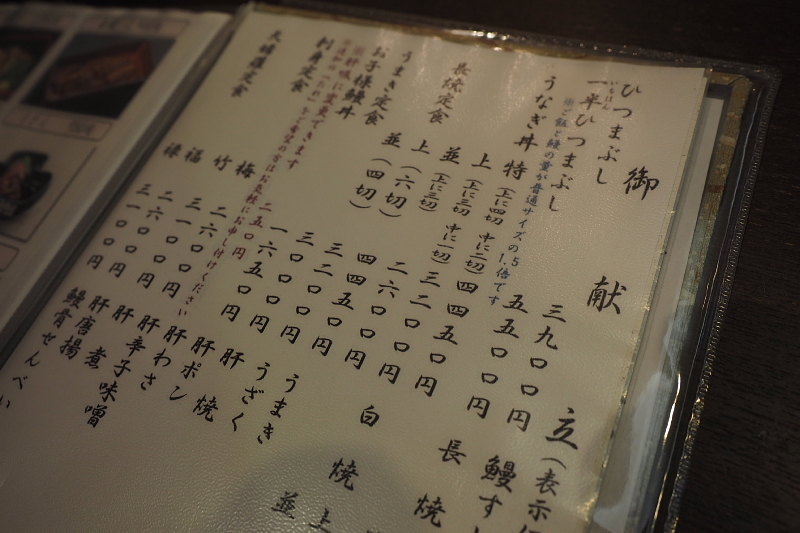 御献立(表示
ひつまぶし 三九〇〇円
いちはん
一半ひつまぶし 五五〇〇円
御飯と鰻の量が普通サイズの1.5倍です
うなぎ丼 特(上に四切 中に二切) 四四五〇円
上(上に三切 中に一切) 三二〇〇円
並(上に三切) 二六〇〇円
長焼定食 上(六切) 四四五〇円
並(四切) 三二〇〇円
うまき定食 三〇〇〇円
お子様鰻丼 一六五〇円
肝吸に変更できます 二五〇円
の方はお気軽にお申し付けください
刺身定食 梅 二六〇〇円
竹 三一〇〇円
天婦羅定食 福 二六〇〇円
禄 三一〇〇円
鰻す
長焼
白焼 上
並
うまき
うざく
肝焼
肝ポン
肝わさ
肝辛子味噌
肝煮
肝唐揚
鰻骨せんべい